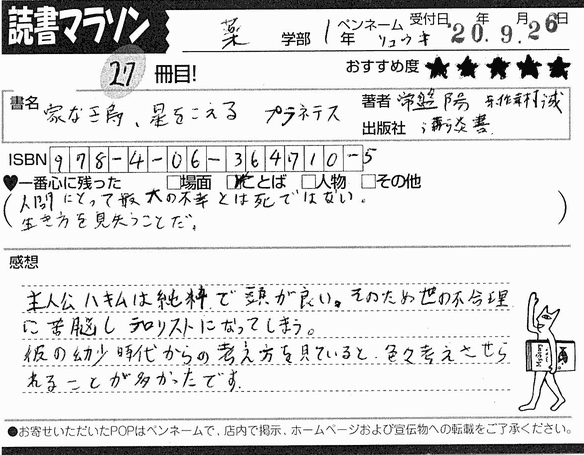 読書マラソン
薬 学部 1年 ペンネーム リュウキ 受付日 '20年 9月 26日
27冊目!
おすすめ度 ★★★★★
書名 家なき鳥、星をこえる プラネテス
著者 常盤陽 幸村誠
出版社 講談書
ISBN 978-4-06-364710-5
♥一番心に残った □場面 ☑ことば □人物 □その他
人間にとって最大の不幸とは死ではない。
生き方を見失うことだ。
感想
主人公ハキムは純粋で頭が良い。そのため世の不合理
に苦脳しテロリストになってしまう。
彼の幼少時代からの考え方を見ていると、色々考えさせら
れることが多かったです
●お寄せいただいたPOPはペンネームで、店内で掲示、ホームページおよび宣伝物への転載をご了承ください。